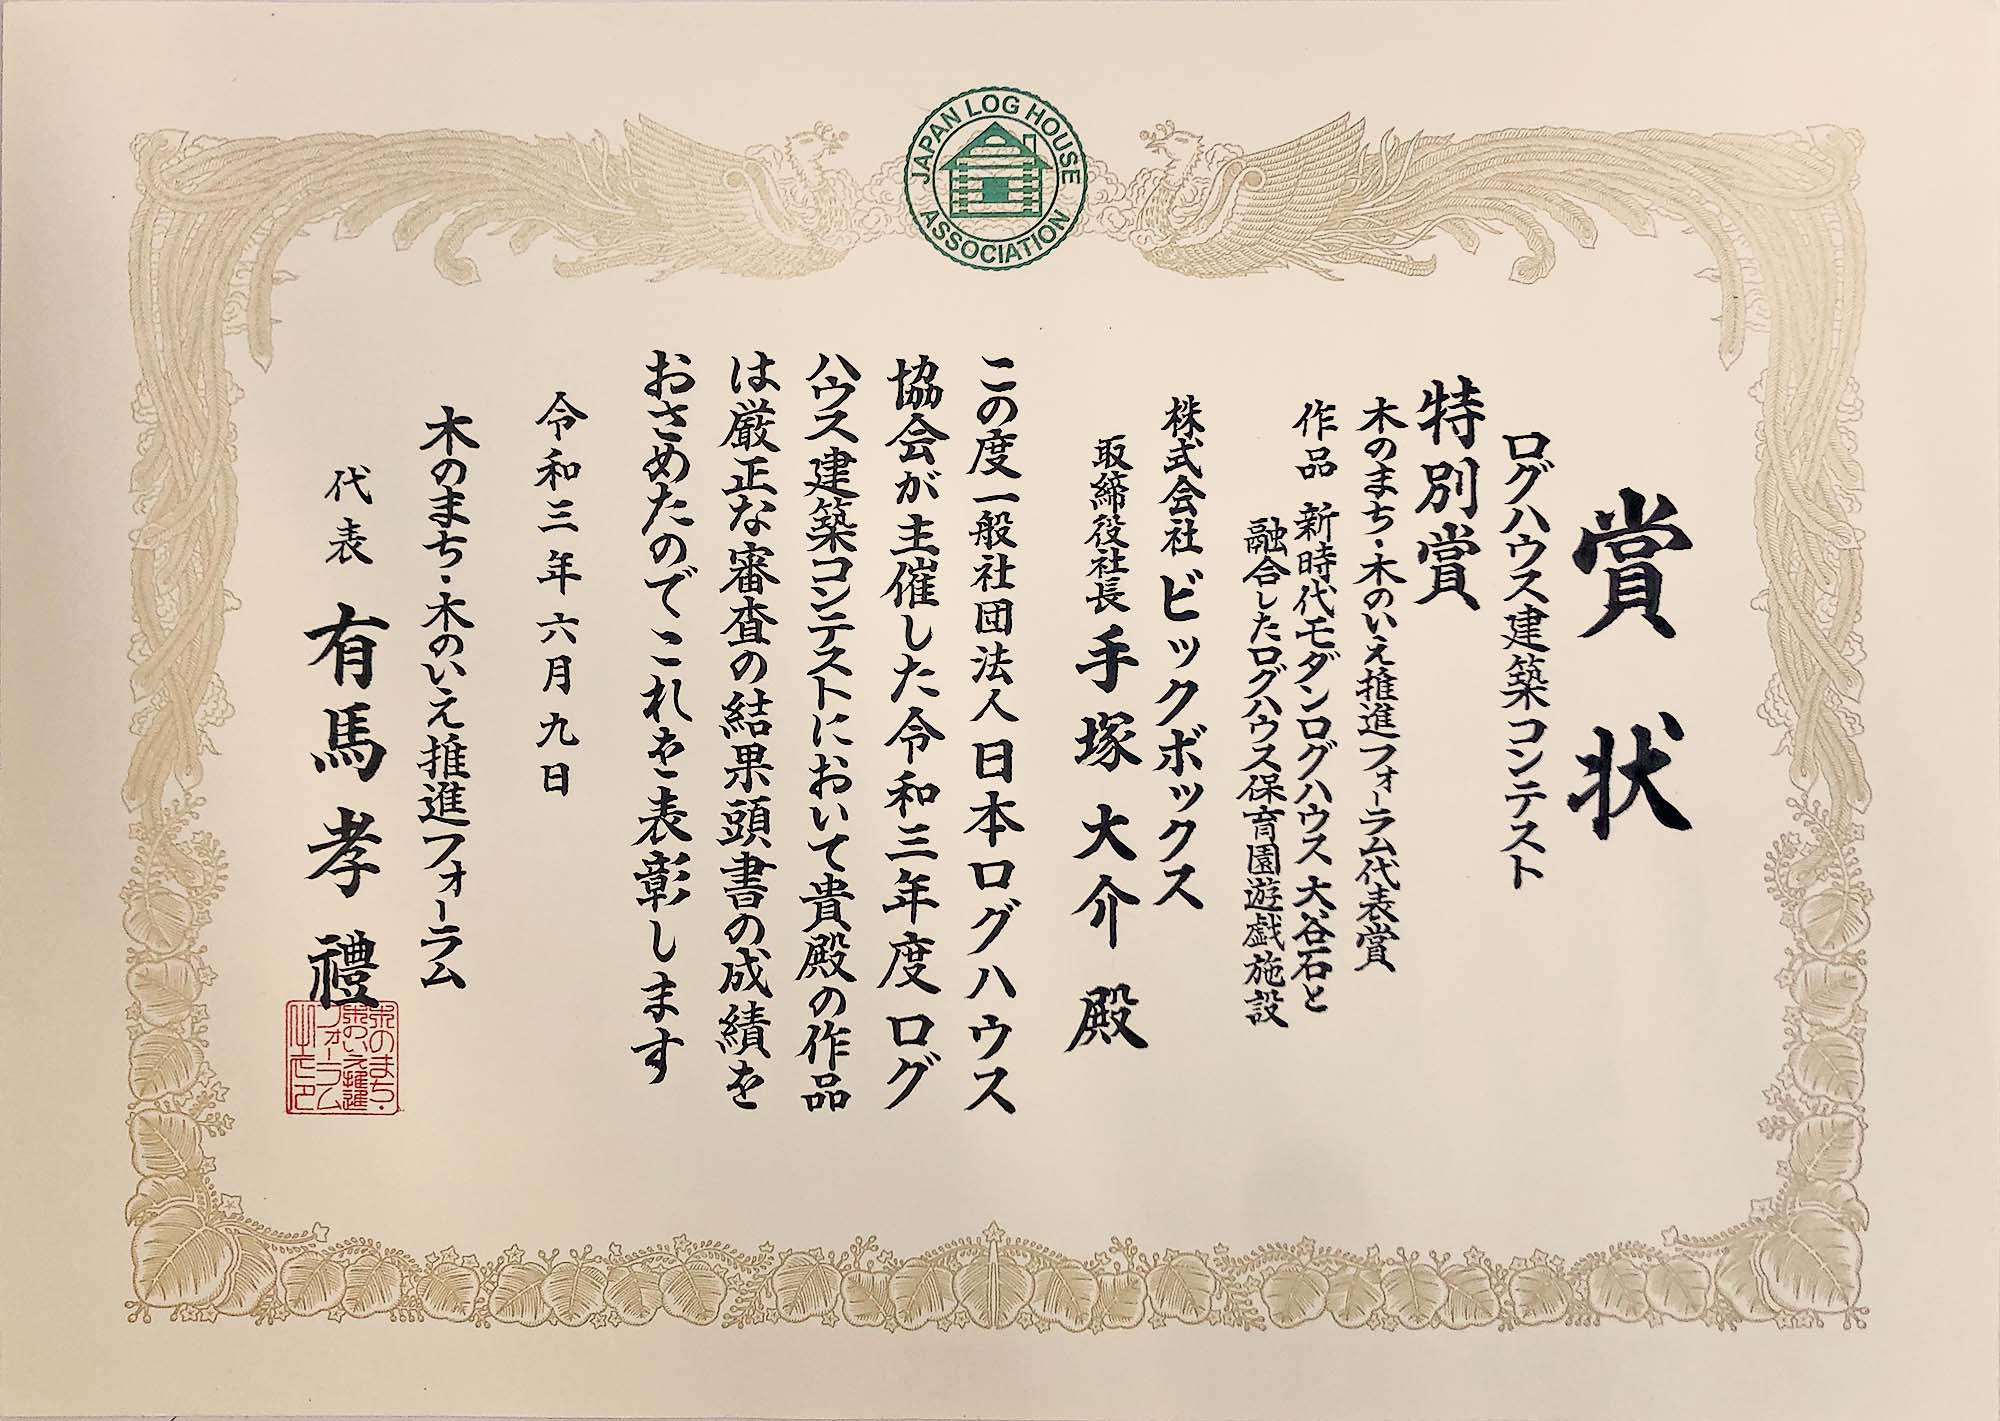 JAPAN LOG HOUSE
ASSOCIATION
賞状
ログハウス建築コンテスト
特別賞
木のまち・木のいえ推進フォーラム代表賞
作品 新時代モダンログハウス 大谷石と
融合したログハウス保育園遊戯施設
株式会社 ビックボックス
取締役社長 手塚大介 殿
この度一般社団法人日本ログハウス
協会が主催した令和三年度ログ
ハウス建築コンテストにおいて貴殿の作品
は厳正な審査の結果頭書の成績を
おさめたのでこれを表彰します
令和三年六月九日
木のまち・木のいえ推進フォーラム
代表 有馬孝禮
木のまち・
木のいえ推進
フォーラム
之印